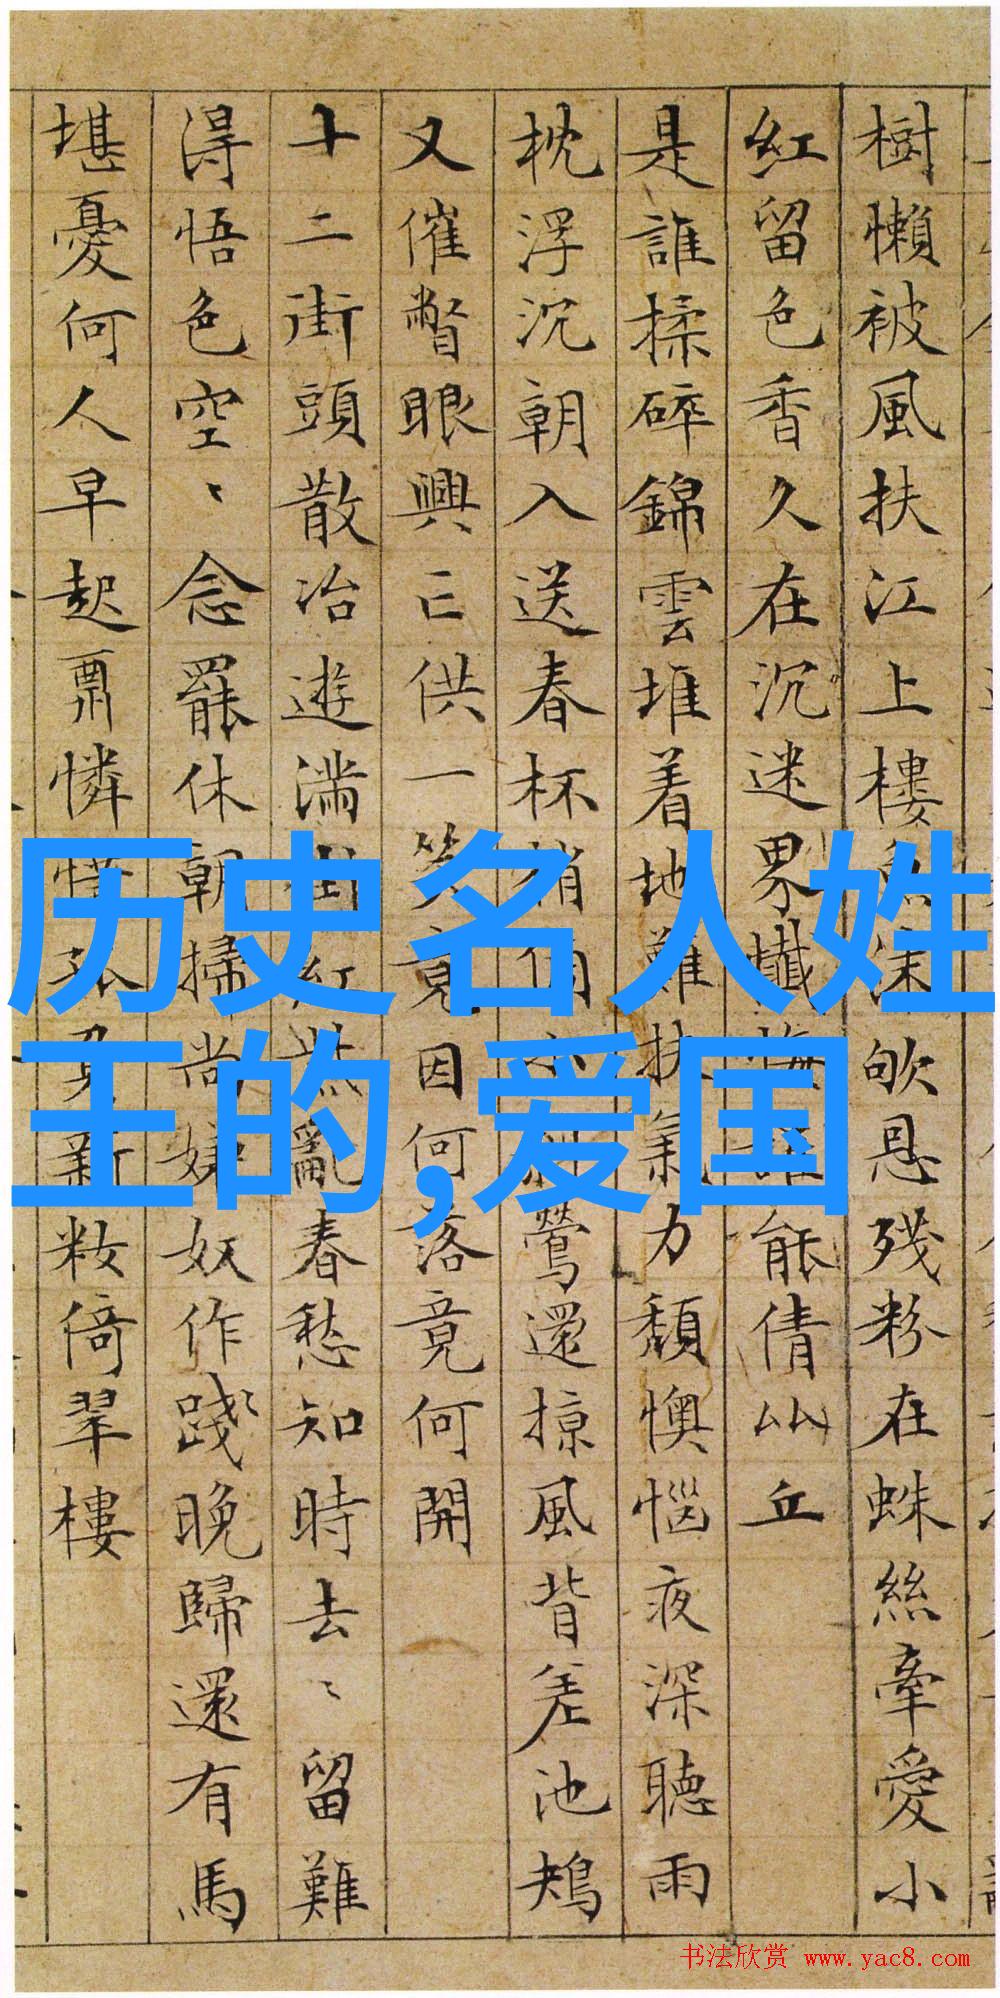 樹懶被風扶江上樓
欹恩殘粉在蛛絲牽愛小
紅留色香久在沉迷界懺
能倩丛丘
是誰揉碎錦雲堆着地難扶氣力頹懊惱夜深聽雨
枕浮沉朝入送春杯梢
鶯還掠風背差池鵊
又催瞥眼興亡供一笑竟因何落竟何開
十二街頭散冶遊滿街紅
亂春愁知時去〻留難
得悟色空〻念罷休朝掃尚嫌奴作踐〻晚歸還有馬
堪憂何人早起票憐惜
新妝倚翠樓
历史名人姓
王的,爱国
书法欣赏 www.yac8.com